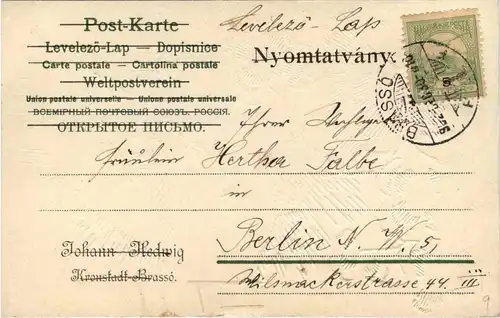 Post-Karte
Levelező-Lap
Levelező-Lap — Dopisnice
Carte postale — Cartolina postale
Nyomtatvány.
Weltpostverein
Union postale universelle — Unione postale universale
ВСЕМІРНЫЙ ПОЧТОВЫЙ СОЮЗЪ. РОССІЯ.
ОТКРЫТОЕ ПИСЬМО.
Ihrer
Fräulein Hertha Falbe
in
Berlin N. W. 5,
Johann Hedwig
Kronstadt-Brassó.
Wilsnackerstrasse 44 III
9